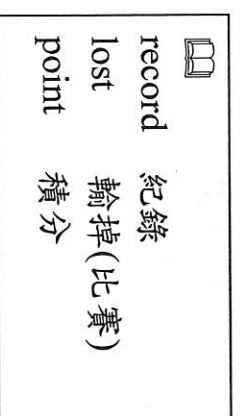 record 紀錄
lost 輸掉(比賽)
point 積分